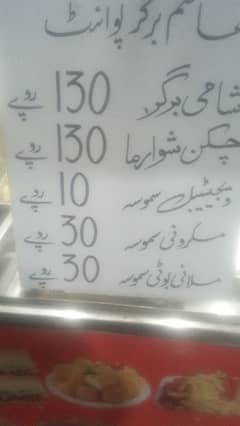 برگر پوائنٹ
شامی برگر 130 روپے
چکن شوارما 130 روپے
ویجیٹیبل سموسہ 10 روپے
میکرونی سموسہ 30 روپے
ملائی بوٹی سموسہ 30 روپے